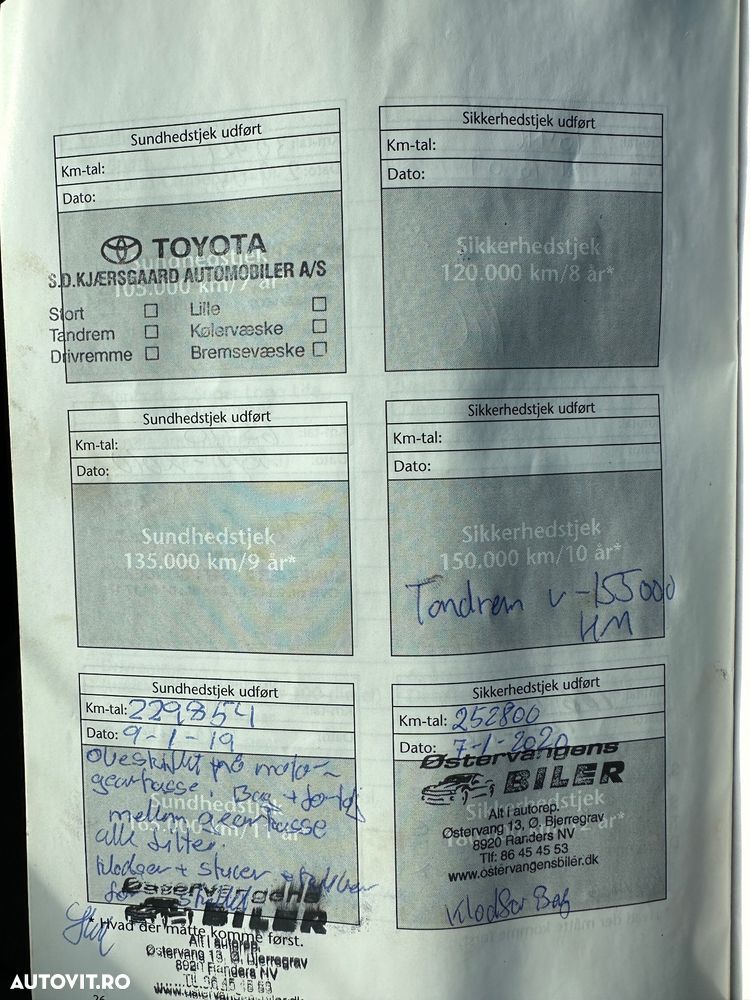 Sundhedstjek udført
Km-tal:
Dato:
TOYOTA
S.D.KJÆRSGAARD AUTOMOBILER A/S
Sundhedstjek
105.000 km/7 år*
Stort
Lille
Tandrem
Kølervæske
Drivremme
Bremsevæske
Sikkerhedstjek udført
Km-tal:
Dato:
Sikkerhedstjek
120.000 km/8 år*
Sundhedstjek udført
Km-tal:
Dato:
Sundhedstjek
135.000 km/9 år*
Sikkerhedstjek udført
Km-tal:
Dato:
Sikkerhedstjek
150.000 km/10 år*
Tandrem v-155000
KM
Sundhedstjek udført
Km-tal: 229854
Dato: 9-1-19
olieskift på motor
gearkasse. Bag + for
mellem gearkasse
alle filter.
klodser + skiver
for
Sundhedstjek
165.000 km/11 år*
Østervangens
BILER
Alt i autorep.
Østervang 13, Ø. Bjerregrav
8920 Randers NV
Tlf: 86 45 45 53
www.ostervangensbiler.dk
Sikkerhedstjek udført
Km-tal: 252800
Dato: 7-1-2020
Østervangens
BILER
Alt i autorep.
Østervang 13, Ø. Bjerregrav
8920 Randers NV
Tlf: 86 45 45 53
www.ostervangensbiler.dk
Klodser Bag
* Hvad der måtte komme først.
26
AUTOVIT.RO